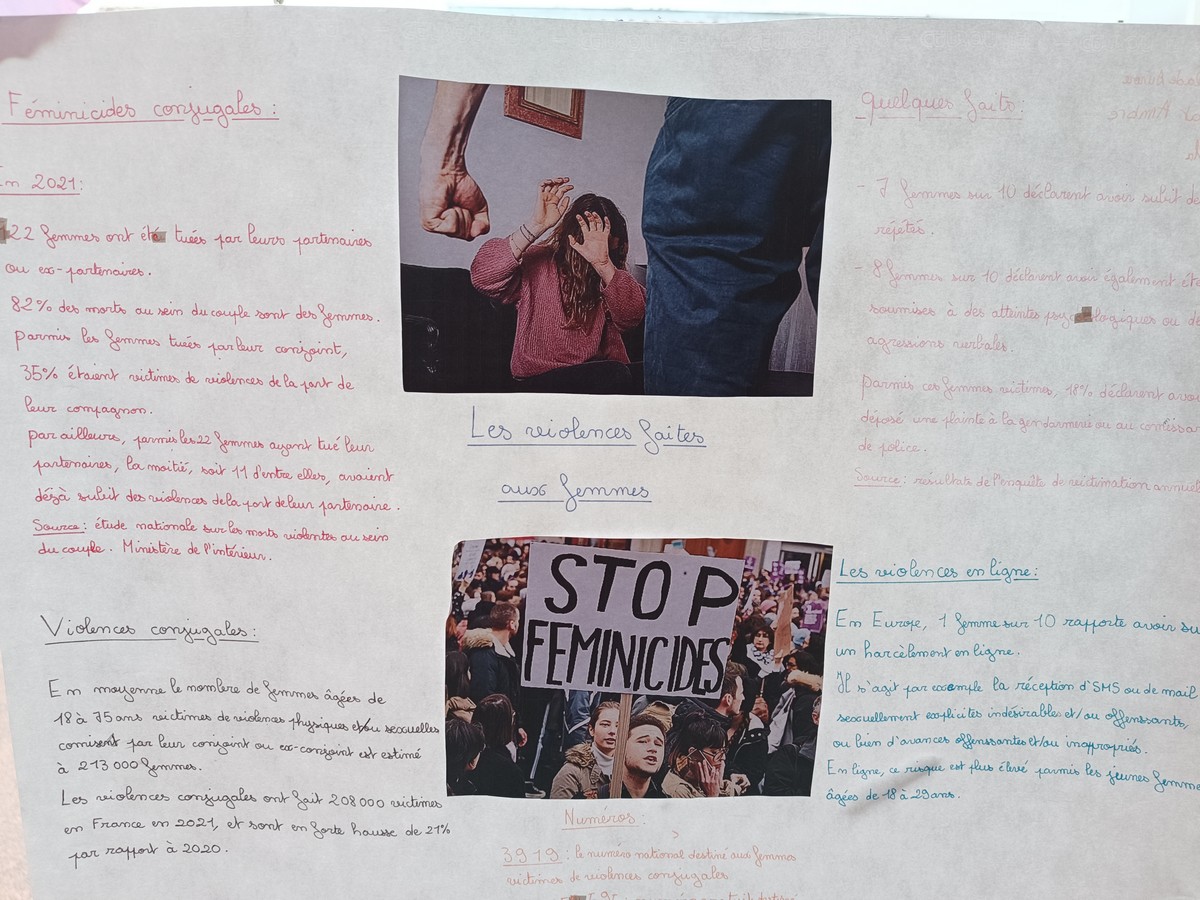 Féminicides conjugales :
En 2021 :
122 femmes ont été tuées par leurs partenaires
ou ex-partenaires.
82% des morts au sein du couple sont des femmes.
parmis les femmes tuées par leur conjoint,
35% étaient victimes de violences de la part de
leur compagnon.
par ailleurs, parmis les 22 femmes ayant tué leur
partenaires, la moitié, soit 11 d'entre elles, avaient
déjà subit des violences de la part de leur partenaire.
Source : étude nationale sur les morts violentes au sein
du couple. Ministère de l'intérieur.
Violences conjugales :
En moyenne le nombre de femmes âgées de
18 à 75 ans victimes de violences physiques et/ou sexuelles
comisent par leur conjoint ou ex-conjoint est estimé
à 213 000 femmes.
Les violences conjugales ont fait 208 000 victimes
en France en 2021, et sont en forte hausse de 21%
par rapport à 2020.
Les violences faites
aux femmes
STOP
FEMINICIDES
Numéros :
3919 : le numéro national destiné aux femmes
victimes de violences conjugales
quelques faits :
- 7 femmes sur 10 déclarent avoir subit de
répétés.
- 8 femmes sur 10 déclarent avoir également été
soumises à des atteintes psychologiques ou de
agressions verbales.
parmis ces femmes victimes, 18% déclarent avoi
déposé une plainte à la gendarmerie ou au comissar
de police.
Source : résultats de l'enquête de victimation annuel
Les violences en ligne :
En Europe, 1 femme sur 10 rapporte avoir su
un harcèlement en ligne.
Il s'agit par exemple la réception d'SMS ou de mail
sexuellement explicites indésirables et/ou offenssants,
ou bien d'avances offenssantes et/ou inappropriés.
En ligne, ce risque est plus élevé parmis les jeunes femme
âgées de 18 à 29 ans.